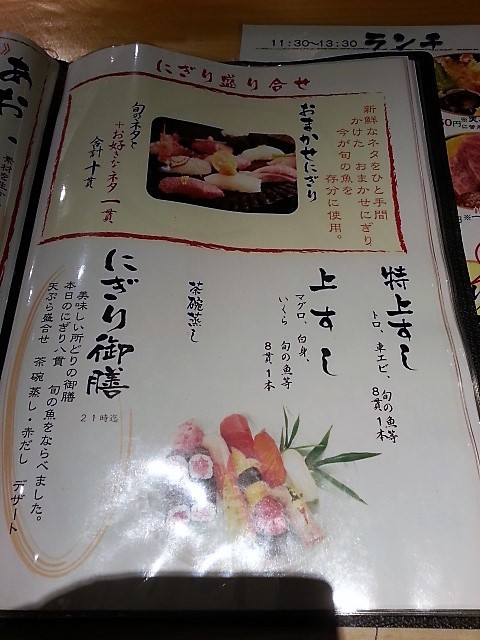 11:30~13:30 ランチ
にぎり盛り合せ
おまかせにぎり
新鮮なネタをひと手間
かけた おまかせにぎり、
今が旬の魚を
存分に使用。
旬のネタと
+お好きなネタ 一貫
合計十貫
特上すし
トロ、車エビ、旬の魚等
8貫1本
上すし
マグロ、白身、
いくら 旬の魚等
8貫1本
茶碗蒸し
にぎり御膳
21時迄
美味しい所どりの御膳
本日のにぎり八貫 旬の魚をならべました。
天ぷら盛合せ 茶碗蒸し・赤だし デザート